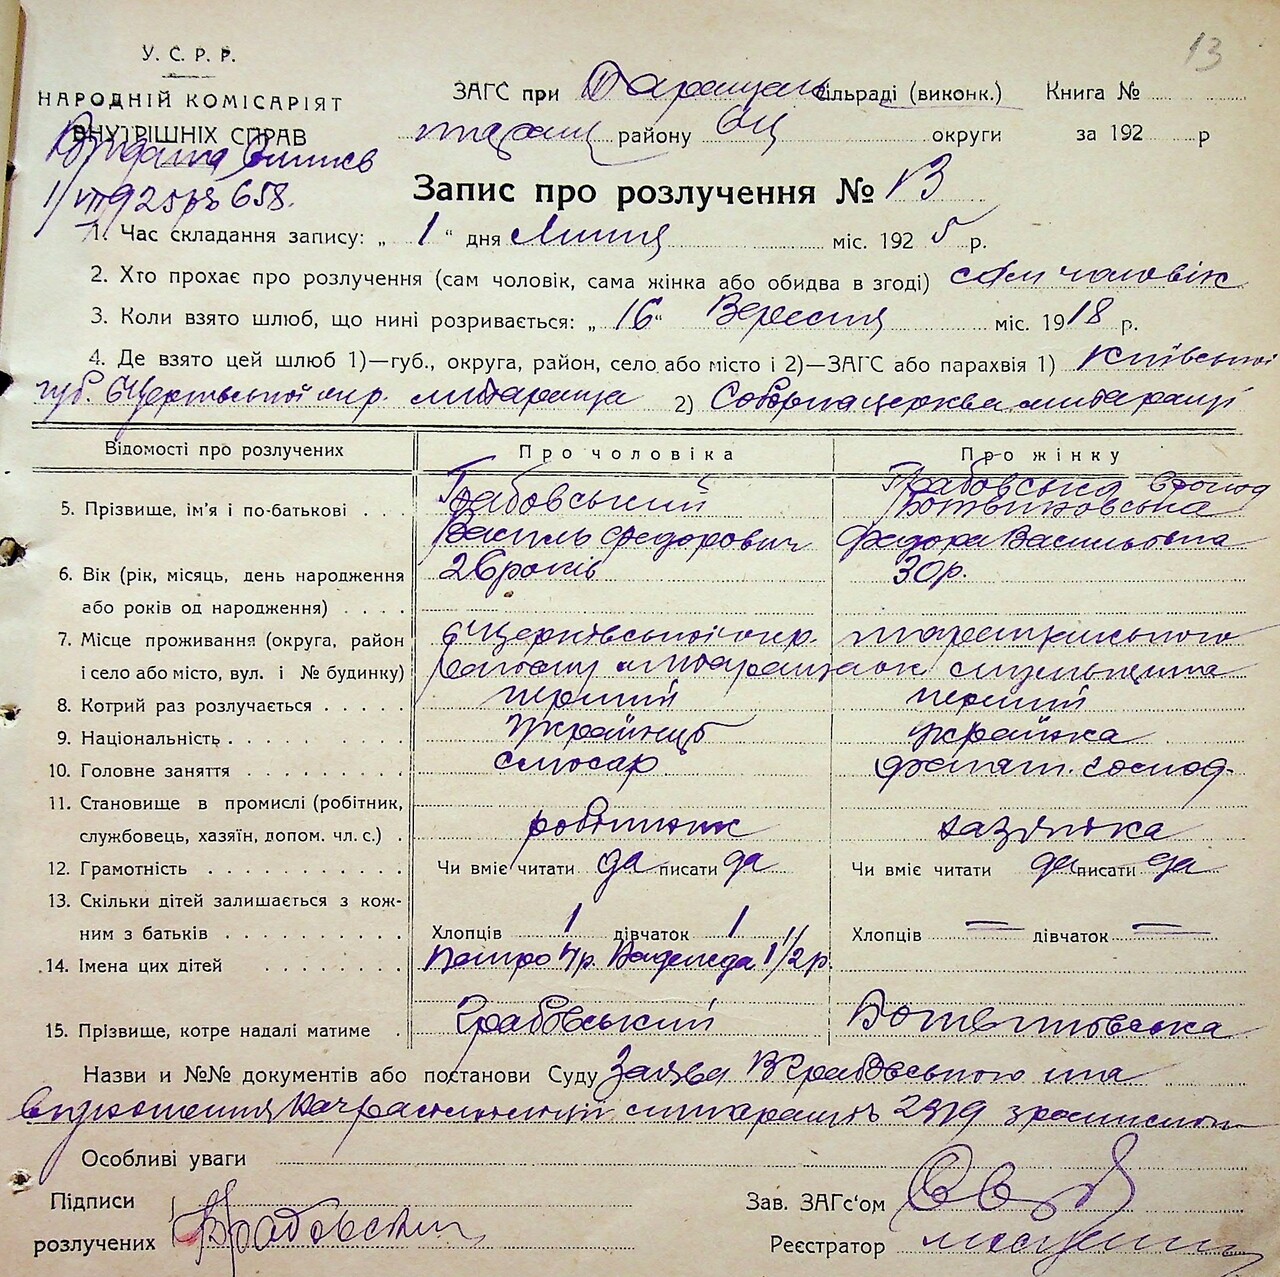 13
У. С. Р. Р.
НАРОДНІЙ КОМІСАРІЯТ
ВНУТРІШНІХ СПРАВ
ЗАГС при Таращан сільраді (виконк.) Книга №
району БЦ округи за 192 р
Видана
1/VII 925 р № 658.
Запис про розлучення № 13
1. Час складання запису: „ 1 “ дня Липця міс. 192 5 р.
2. Хто прохає про розлучення (сам чоловік, сама жінка або обидва в згоді) сам чоловік
3. Коли взято шлюб, що нині розривається: „ 16 “ Вересня міс. 19 18 р.
4. Де взято цей шлюб 1)—губ., округа, район, село або місто і 2)—ЗАГС або парахвія 1) Київської
губ. БЦерківської окр. м Тараща 2) Соборна церква м Таращі
Відомості про розлучених
Про чоловіка
Про жінку
5. Прізвище, ім'я і по-батькові . . .
Грабовський
Василь Федорович
Грабовська
Ботвиновська
Федора Васильовна
6. Вік (рік, місяць, день народження
або років од народження) . . . .
26 років
30 р.
7. Місце проживання (округа, район
і село або місто, вул. і № будинку)
БЦерківської окр. Таращанського
району м Тараща
8. Котрий раз розлучається . . . . .
перший
перший
9. Національність . . . . . . . . .
Українець
Українка
10. Головне заняття . . . . . . . . .
слюсар
домаш. господ.
11. Становище в промислі (робітник,
службовець, хазяїн, допом. чл. с.) .
робітник
хазяйка
12. Грамотність . . . . . . . . . . .
Чи вміє читати да писати да
Чи вміє читати да писати да
13. Скільки дітей залишається з кож-
ним з батьків . . . . . . . . . .
Хлопців 1 дівчаток 1
Хлопців = дівчаток =
14. Імена цих дітей . . . . . . .
Петро 4 р. Надежда 1 1/2 р.
15. Прізвище, котре надалі матиме .
Грабовський
Ботвиновська
Назви и №№ документів або постанови Суду Заява ВГрабовського та
2979 з
Особливі уваги
Підписи
розлучених
Грабовський
Зав. ЗАГс'ом
Реєстратор